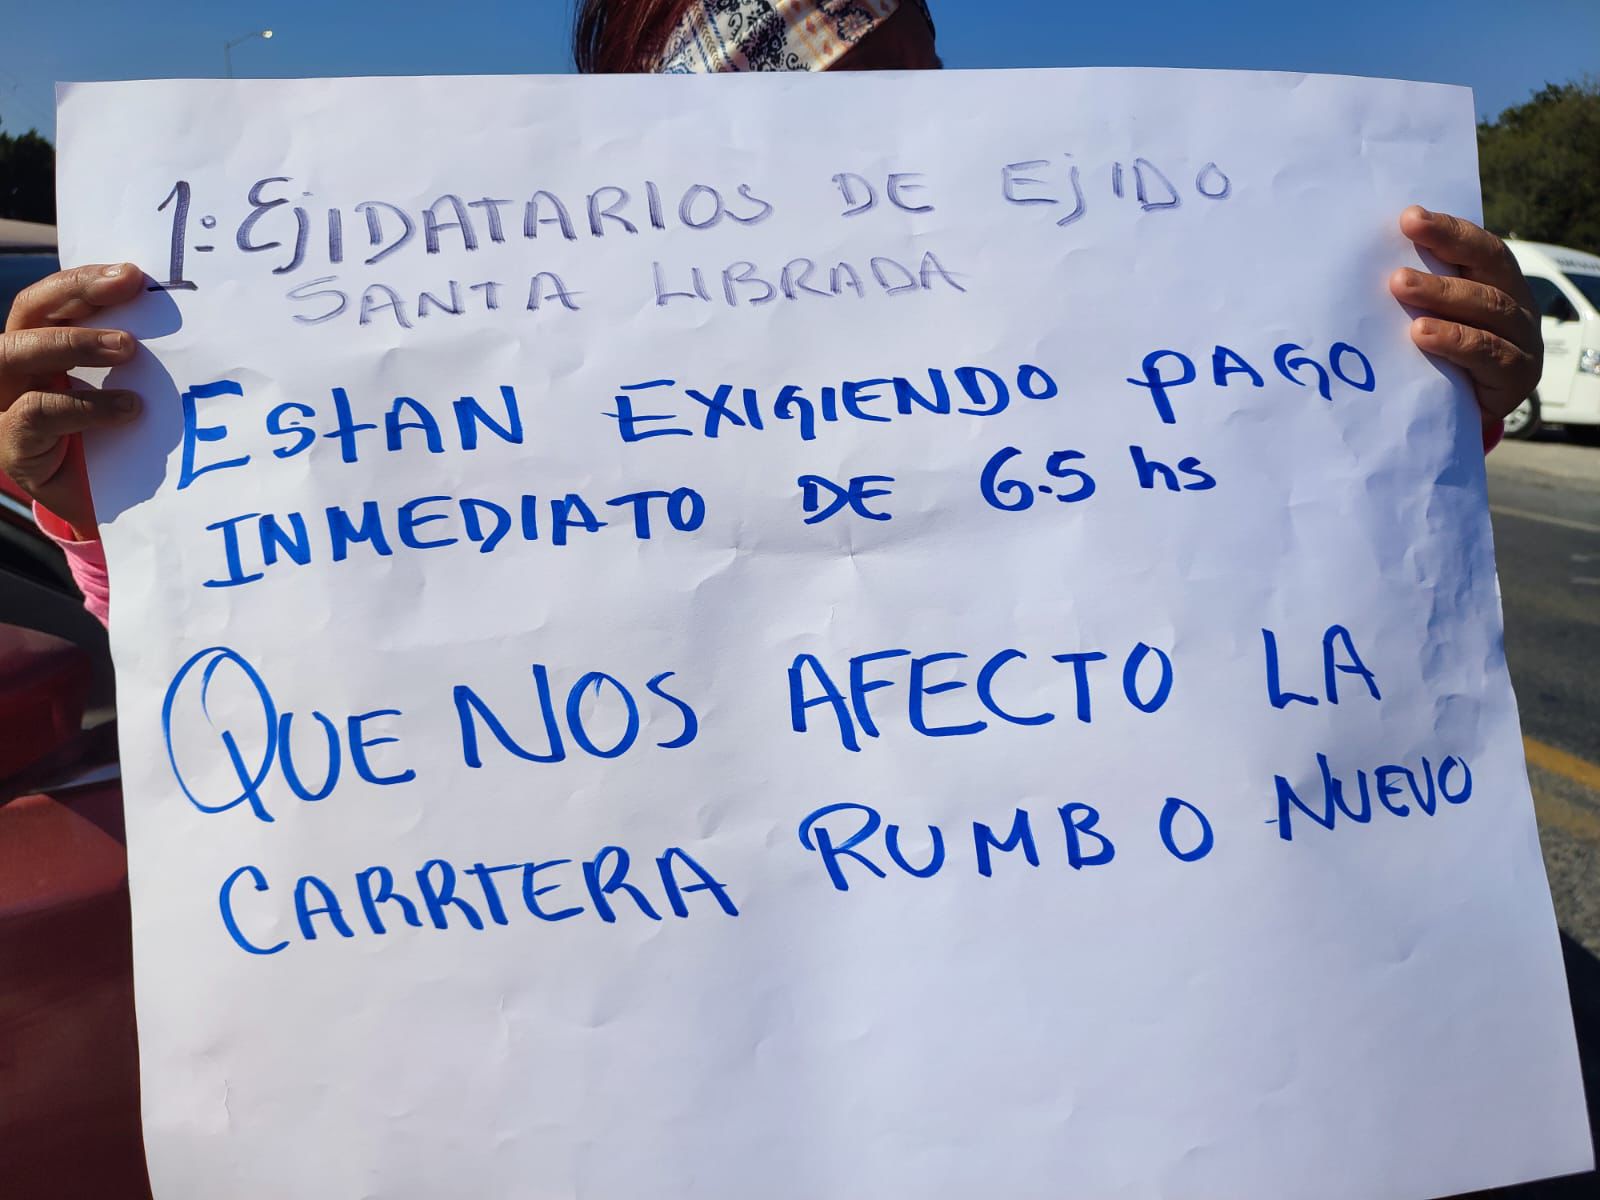 1º EJIDATARIOS DE EJIDO
SANTA LIBRADA
EStAN EXIGIENDO PAGO
INMEDIATO DE 6.5 hs
QUE NOS AFECTO LA
CARRTERA RUMBO NUEVO